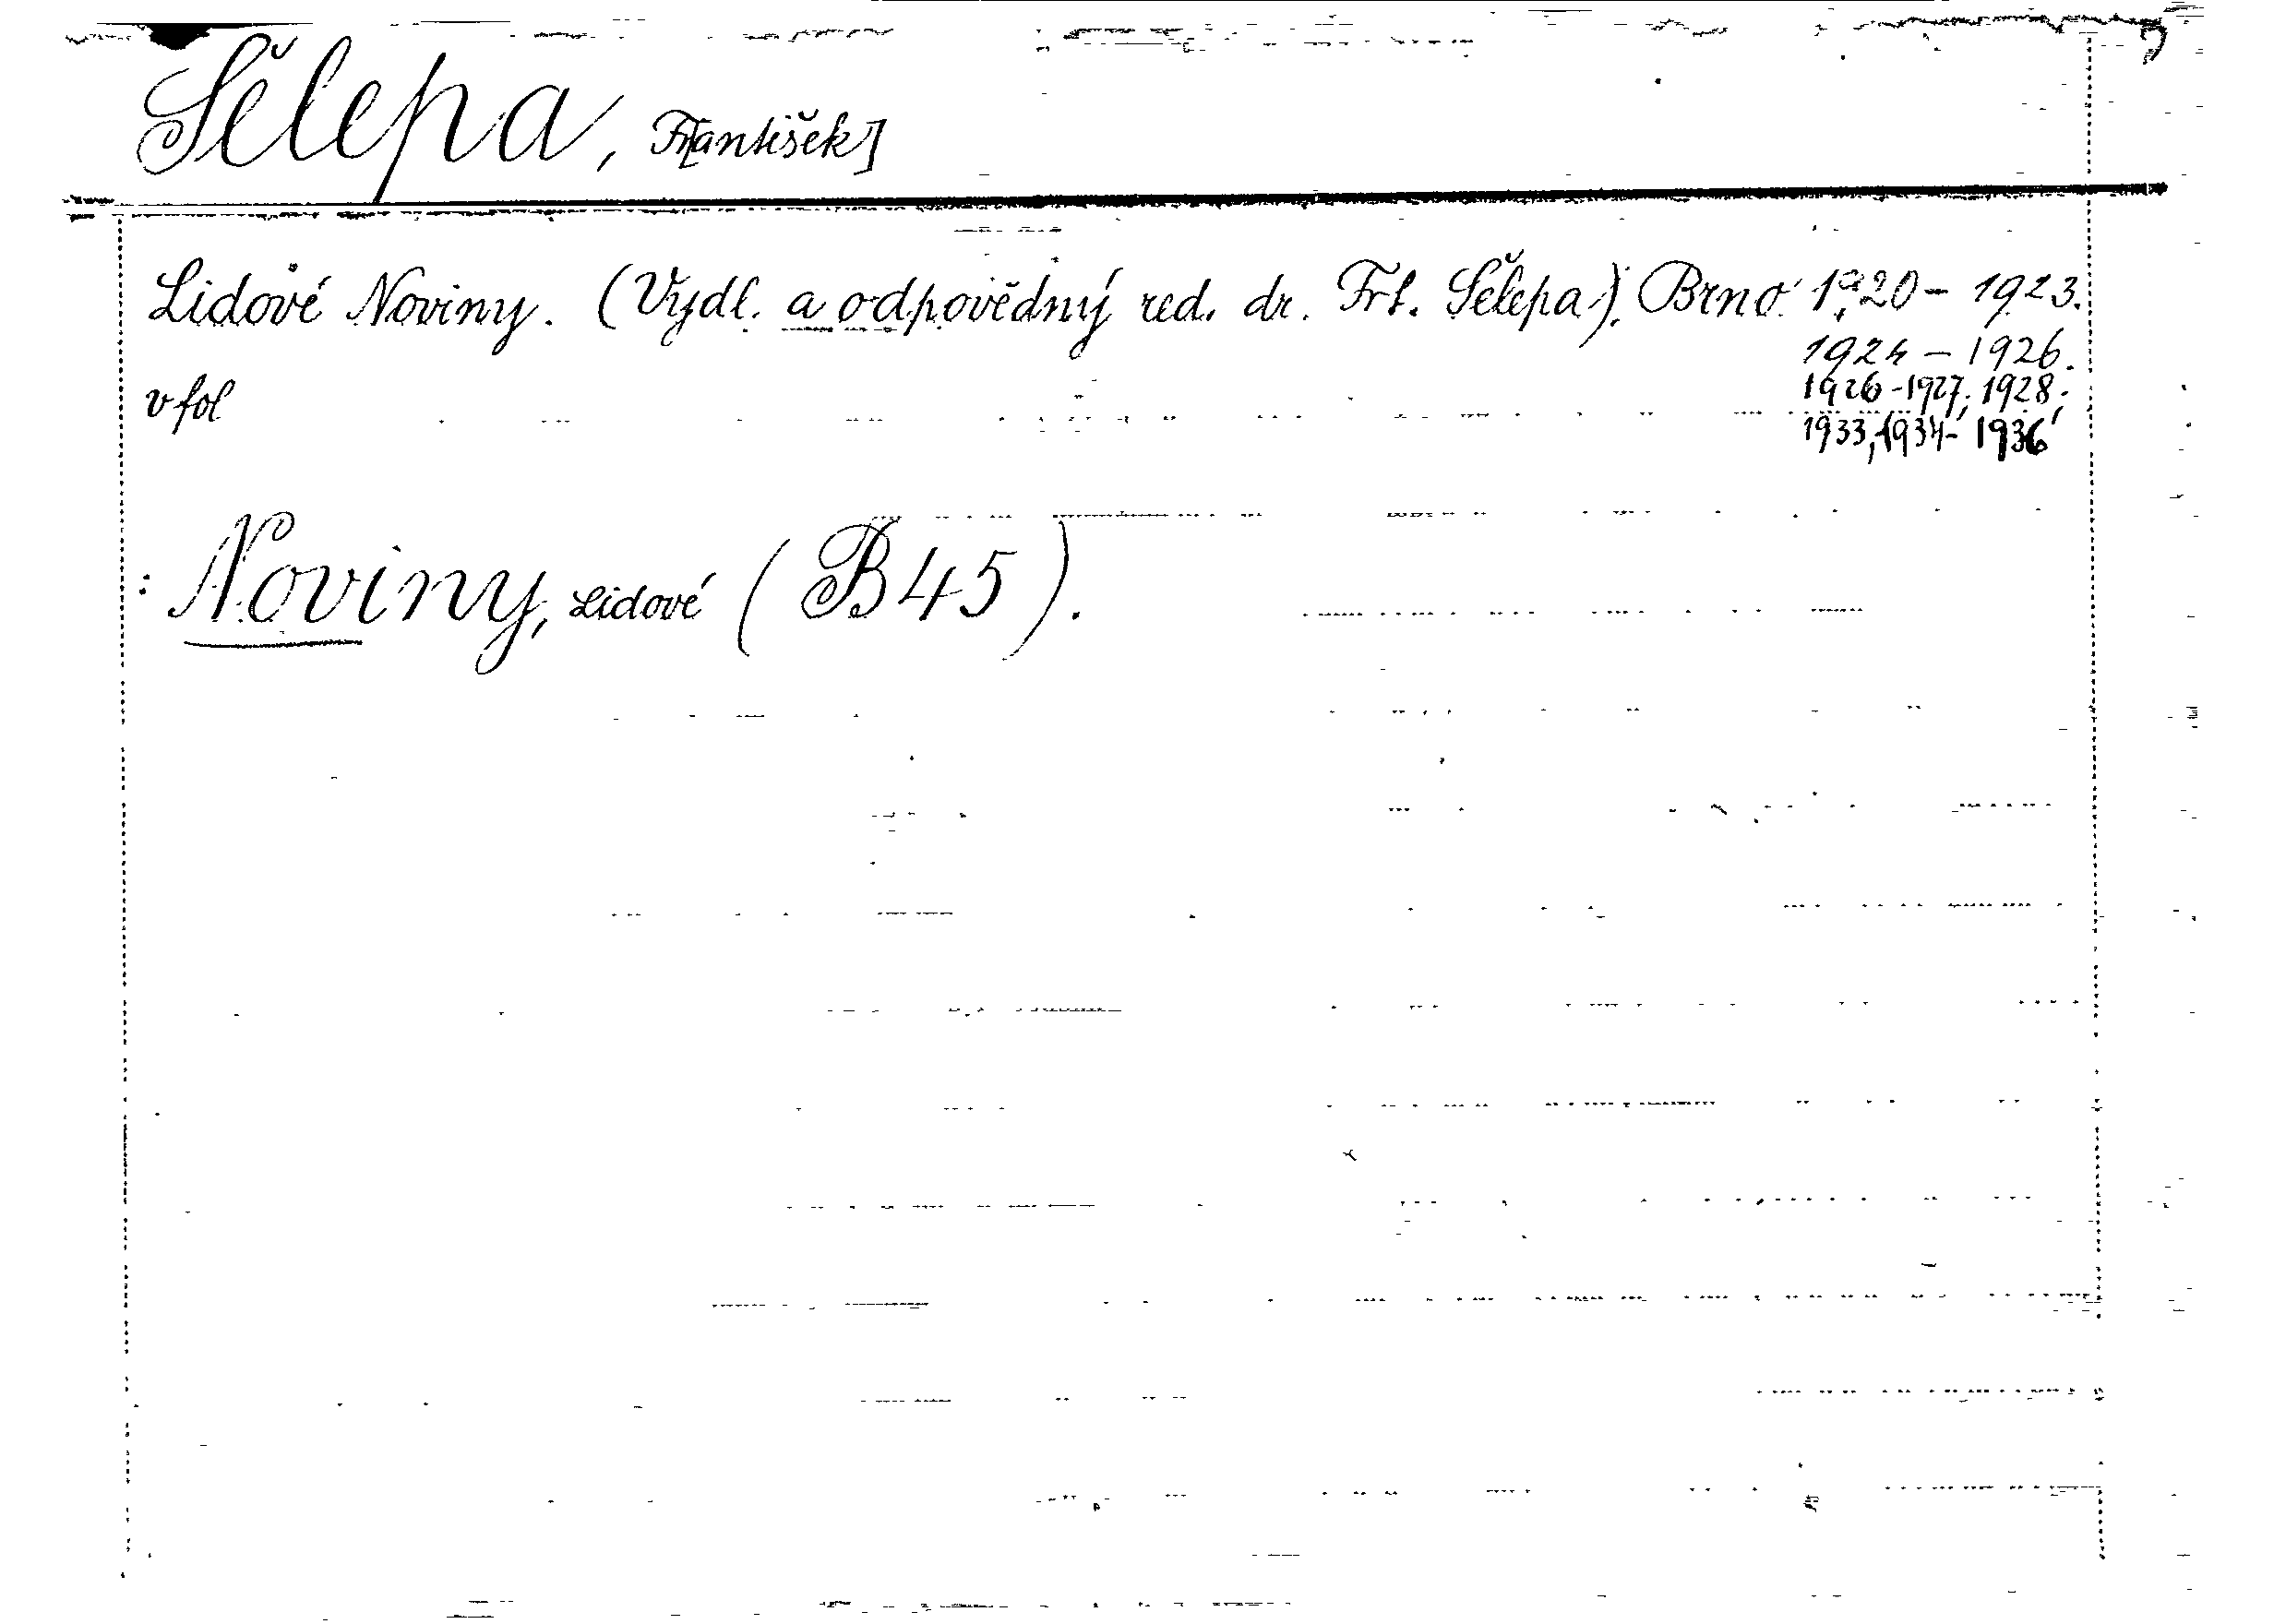 Šelepa, Fr[antišek]
Lidové Noviny. (Vydl. a odpovědný red. dr. Frt. Šelepa). Brno 1920-1923.
1924-1926.
1926-1927, 1928,
v fol
1933, 1934-1936
: Noviny, Lidové (B45).